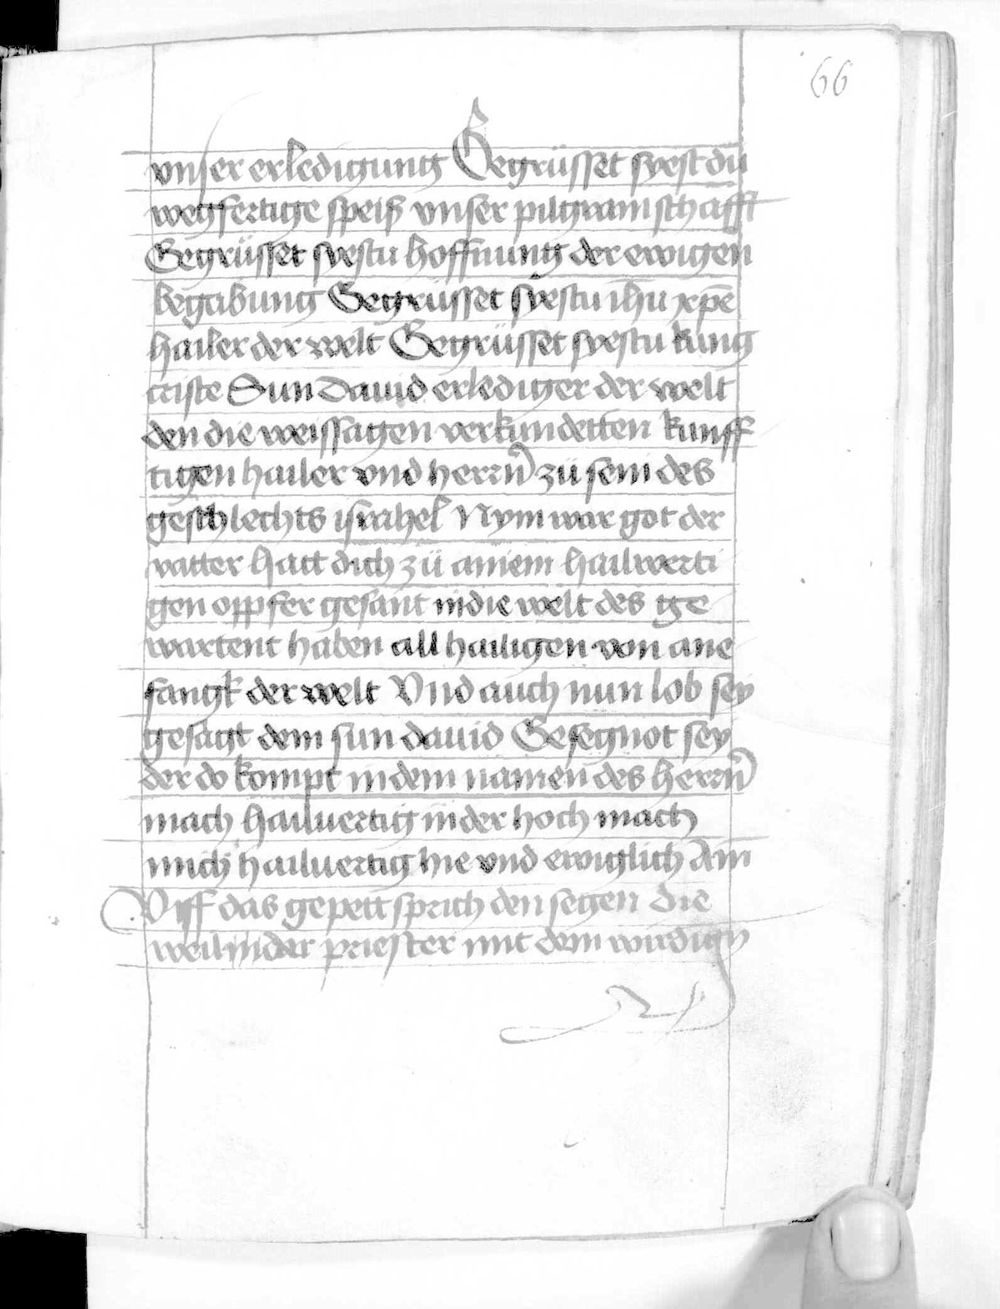 66
vnser erledigung Gegrüsset syest du
wegfertige speiß vnser pilgramschafft
Gegrüsset syestu hoffnung der ewigen
begabung Gegrüsset syestu ihu xpē
hailer der welt Gegrüsset syestu kung
criste Sun dauid erlediger der welt
den die weissagen verkundetten kunff
tigen hailer vnd herrn̄ zü sein des
geschlechts israhel Nym war got der
vatter hatt dich zü ainem hailwerti
gen oppfer gesant in die welt des ge
wartent haben all hailigen von ane
fangk der welt Vnd auch nun lob sey
gesagt dem sun dauid Gesegnot sey
der do kompt in dem namen des herrn̄
mach hailuertig in der hoch mach
mich hailuertig hie vnd ewiglich Am̄
Vff das gepett sprich den segen die
weil in der priester mit dem wirdign